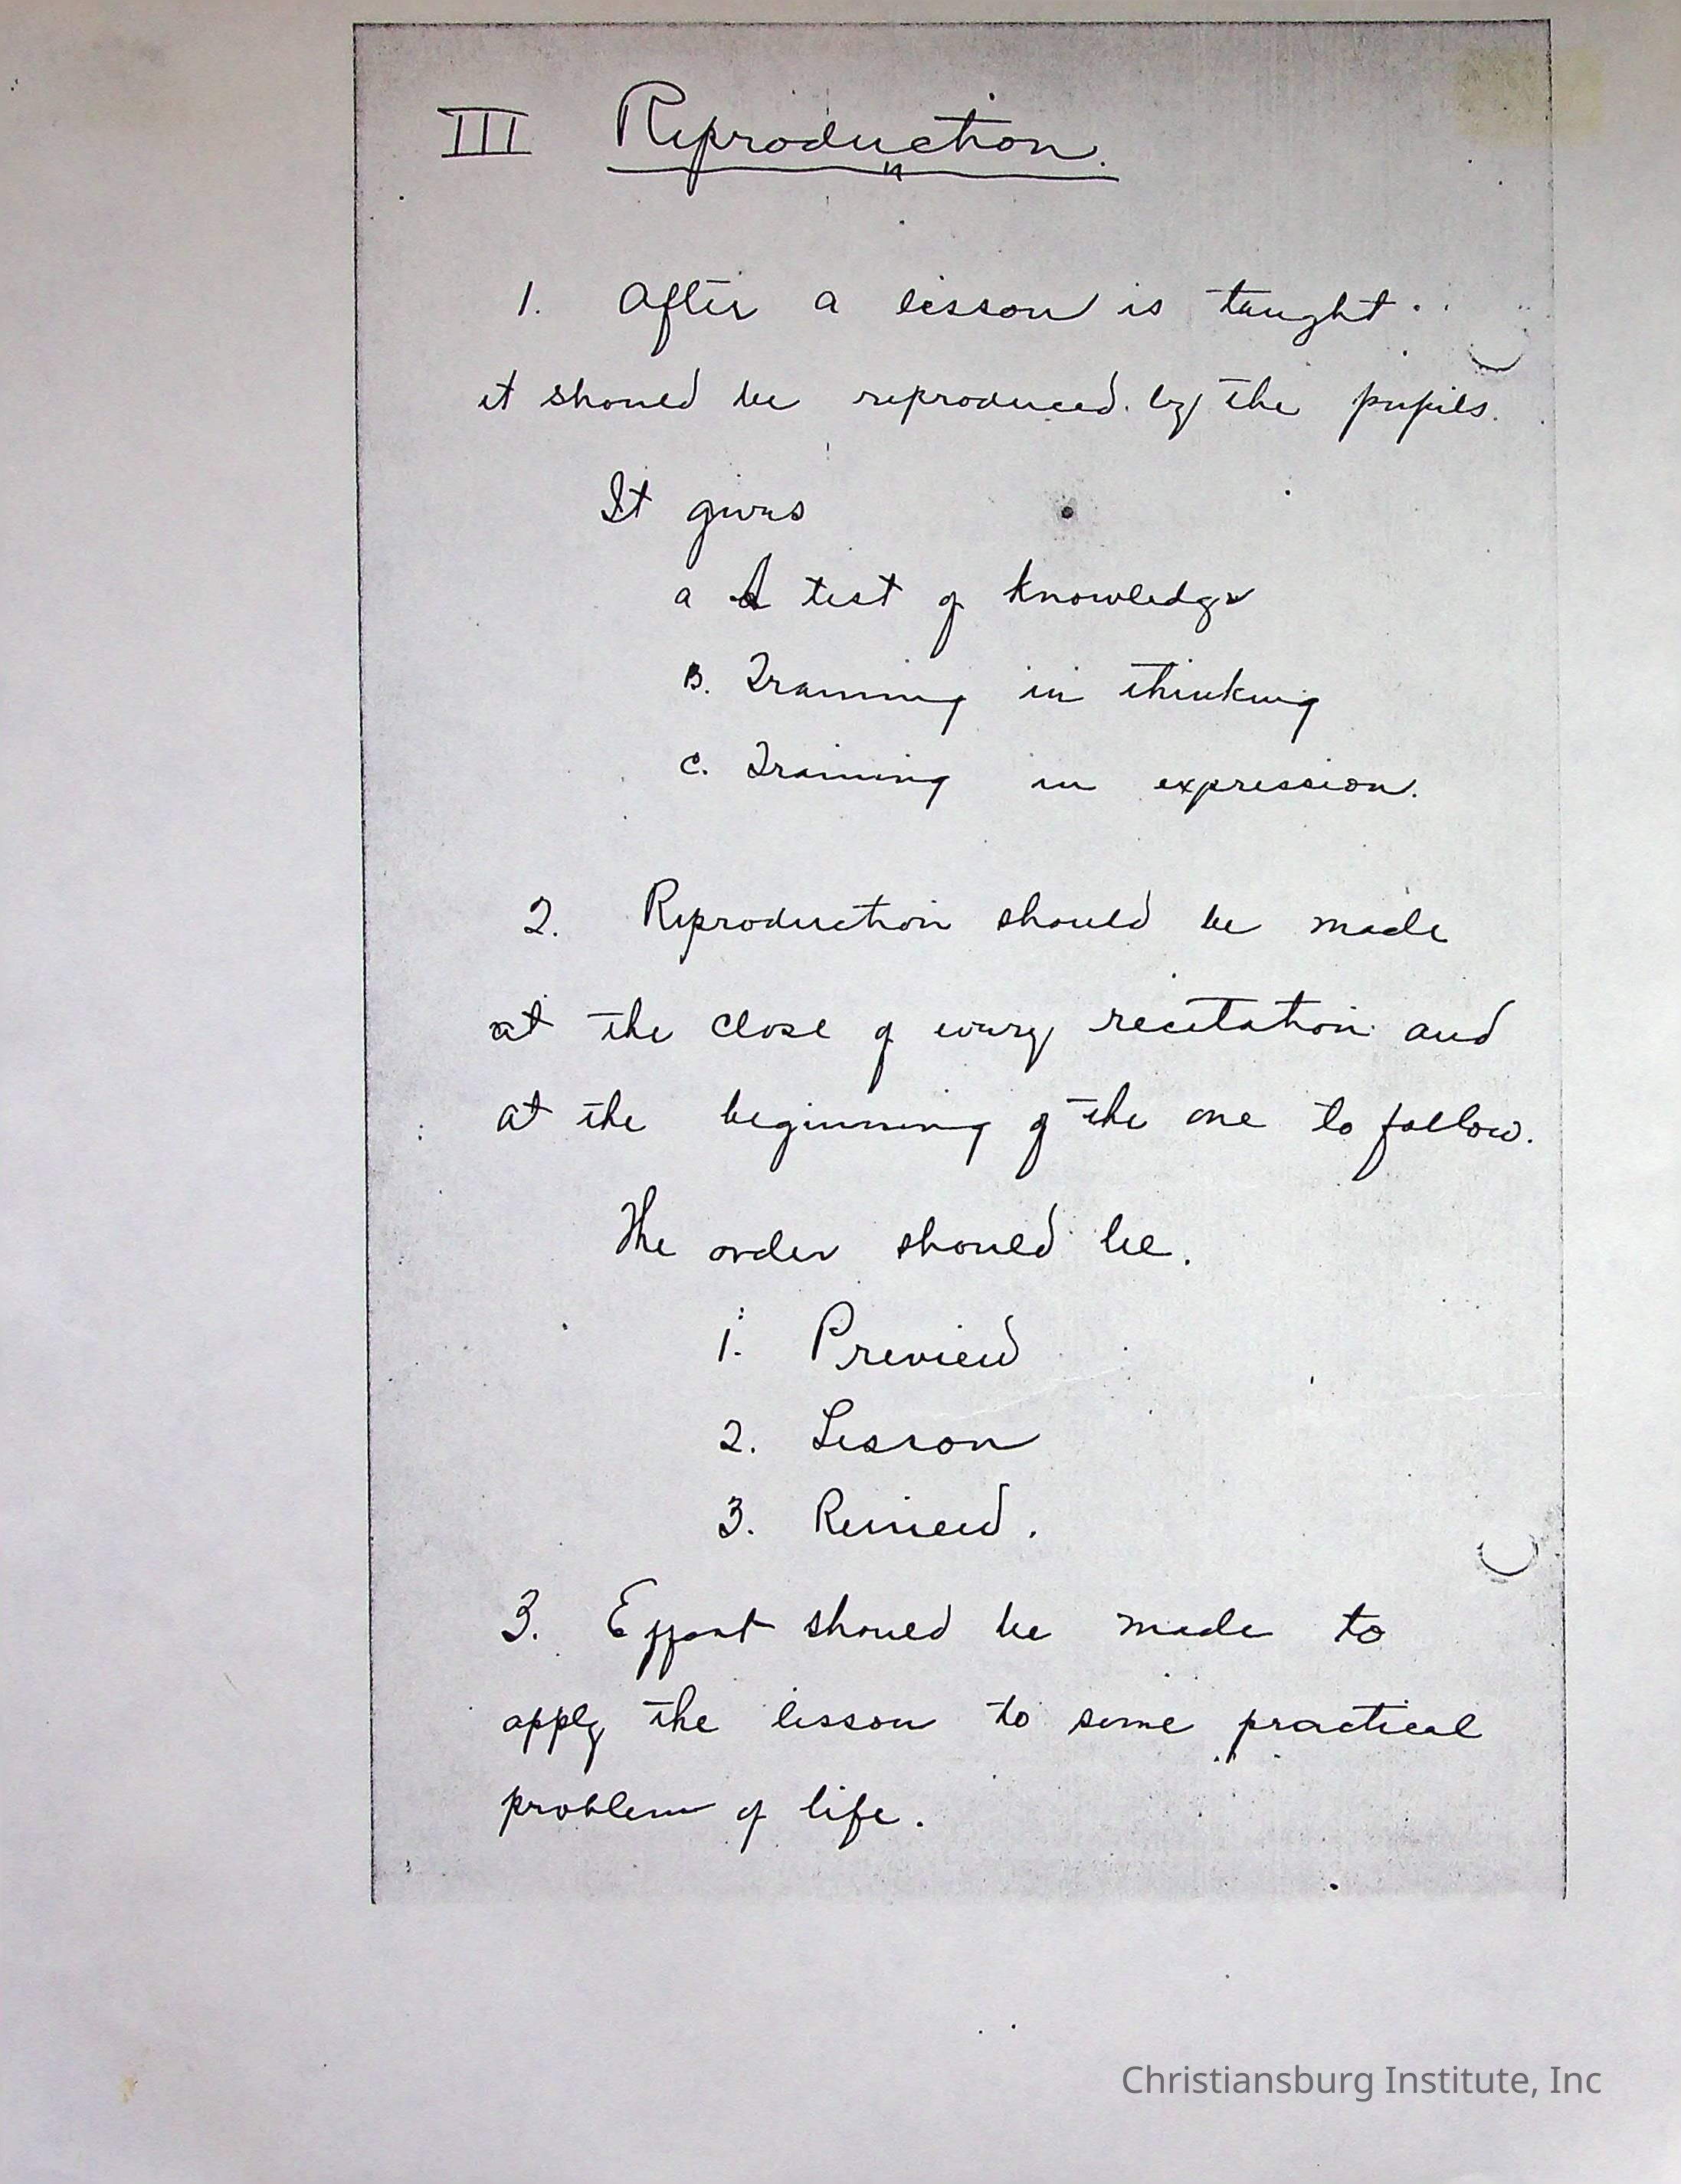 III Reproduction.
1. After a lesson is taught
it should be reproduced by the pupils.
It gives
a A test of knowledge
B. Training in thinking
C. Training in expression.
2. Reproduction should be made
at the close of every recitation and
at the beginning of the one to follow.
The order should be.
1. Preview
2. Lesson
3. Review.
3. Effort should be made to
apply the lesson to some practical
problem of life.
Christiansburg Institute, Inc